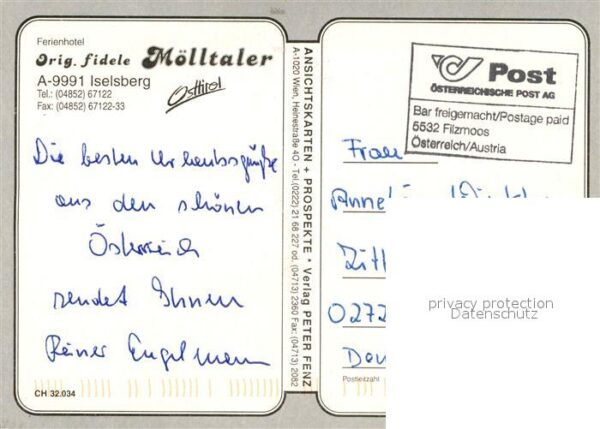 Ferienhotel
Orig. fidele Mölltaler
A-9991 Iselsberg
Tel.: (04852) 67122
Fax: (04852) 67122-33
Osttirol
Die besten Urlaubsgrüße
aus den schönen
Österreich
sendet Ihnen
Reiner Engelmann
CH 32.034
ANSICHTSKARTEN + PROSPEKTE * Verlag PETER FENZ
A-1020 Wien, Heinestraße 40 - Tel.(0222) 21 68 227 od. (04713) 2360 Fax: (04713) 2082
Post
ÖSTERREICHISCHE POST AG
Bar freigemacht/Postage paid
5532 Filzmoos
Österreich/Austria
Frau
Zitt
0272
Postleitzahl
privacy protection
Datenschutz